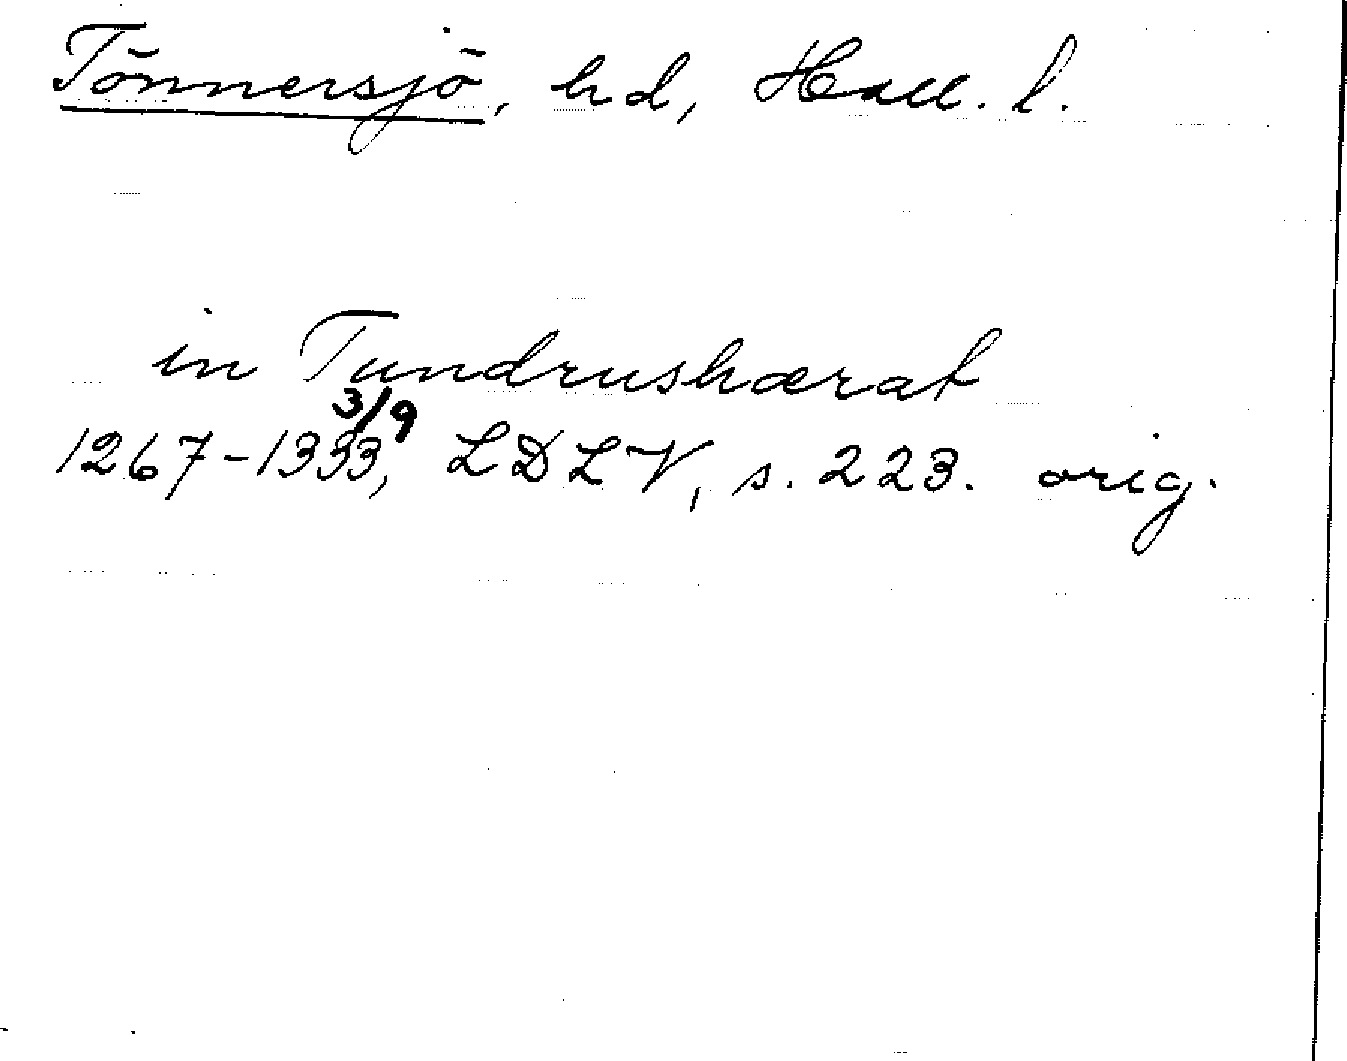 Tönnersjö, hd, Hall. l.
in Tundrushærat
3/9
1267-1333, LDLV, s. 223. orig.